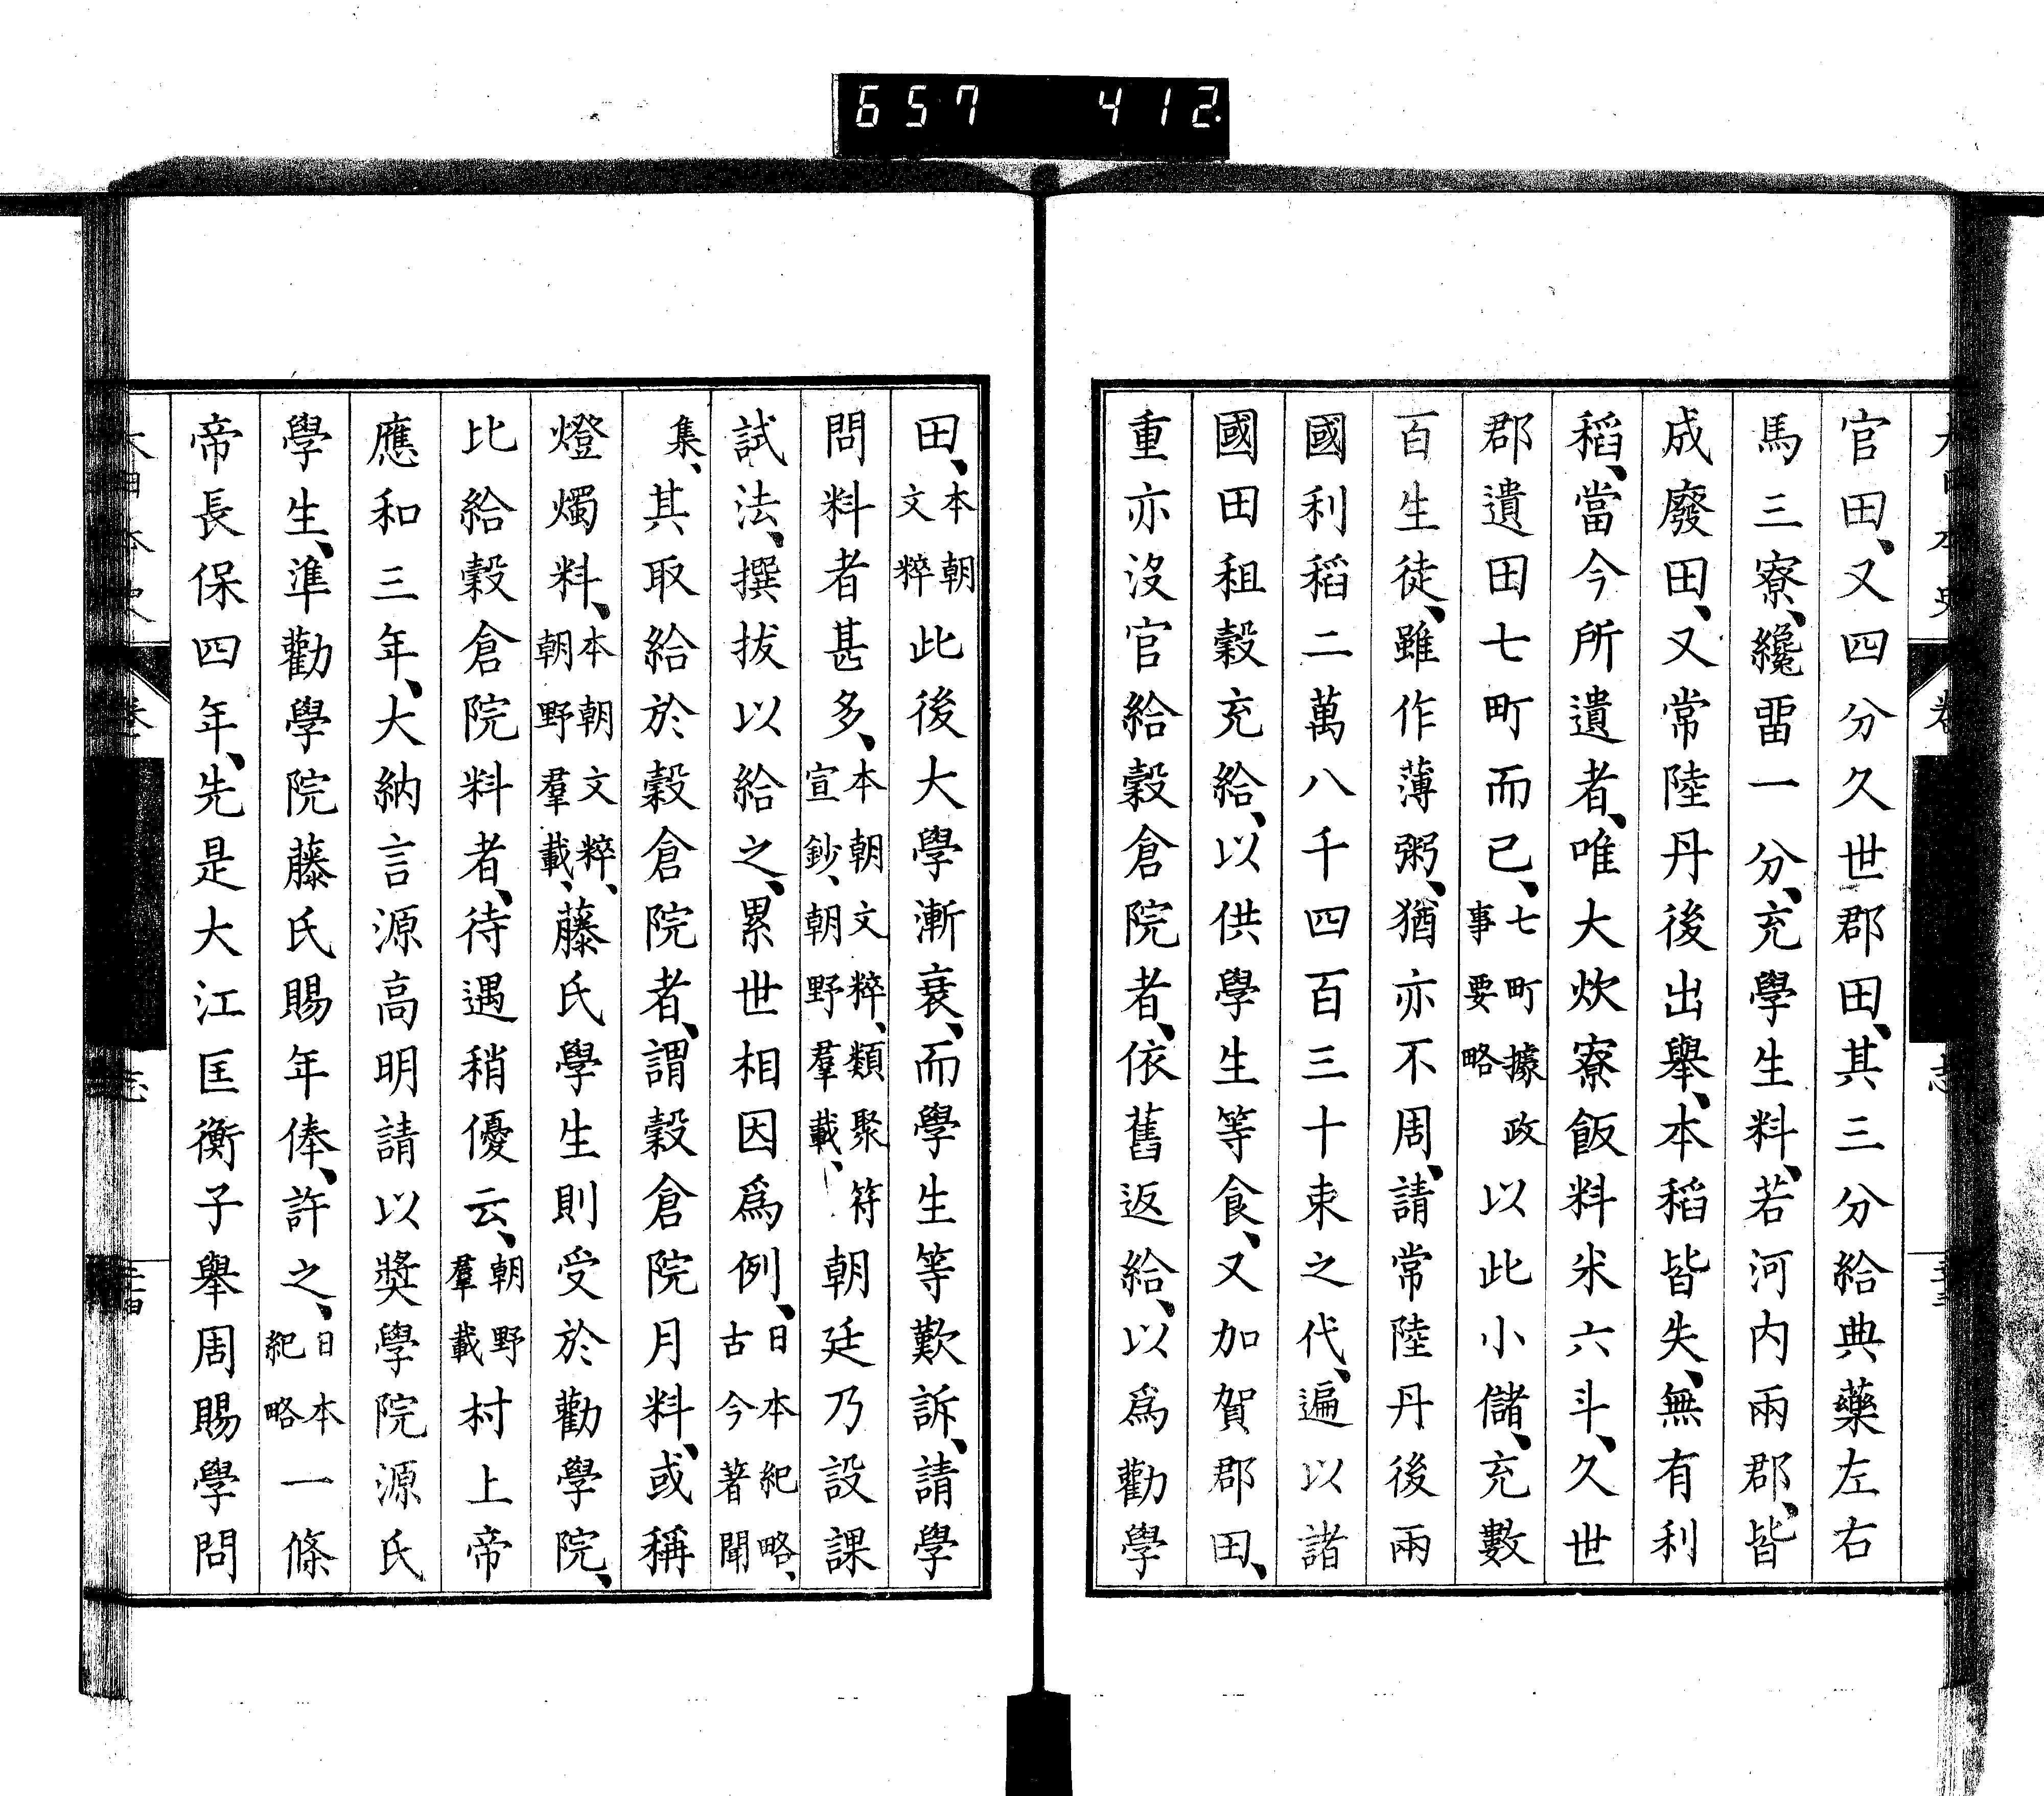 657 412
官田、又四分久世郡田、其三分給典藥左右
馬三寮、纔畱一分、充學生料、若河内兩郡、皆
成廢田、又常陸丹後出舉、本稻皆失、無有利
稻、當今所遺者、唯大炊寮飯料米六斗、久世
郡遺田七町而已、七町據政事要略以此小儲、充數
百生徒、雖作薄粥、猶亦不周、請常陸丹後兩
國利稻二萬八千四百三十束之代、遍以諸
國田租穀充給、以供學生等食、又加賀郡田、
重亦沒官給穀倉院者、依舊返給、以爲勸學
田、本朝文粹此後大學漸衰、而學生等歎訴、請學
問料者甚多、本朝文粹、類聚符宣鈔、朝野羣載、朝廷乃設課
試法、撰拔以給之、累世相因爲例、日本紀略、古今著聞
集、其取給於穀倉院者、謂穀倉院月料、或稱
燈燭料、本朝文粹、朝野羣載、藤氏學生則受於勸學院、
比給穀倉院料者、待遇稍優云、朝野羣載村上帝
應和三年、大納言源高明請以奬學院源氏
學生、準勸學院藤氏賜年俸、許之、日本紀略一條
帝長保四年、先是大江匡衡子舉周賜學問